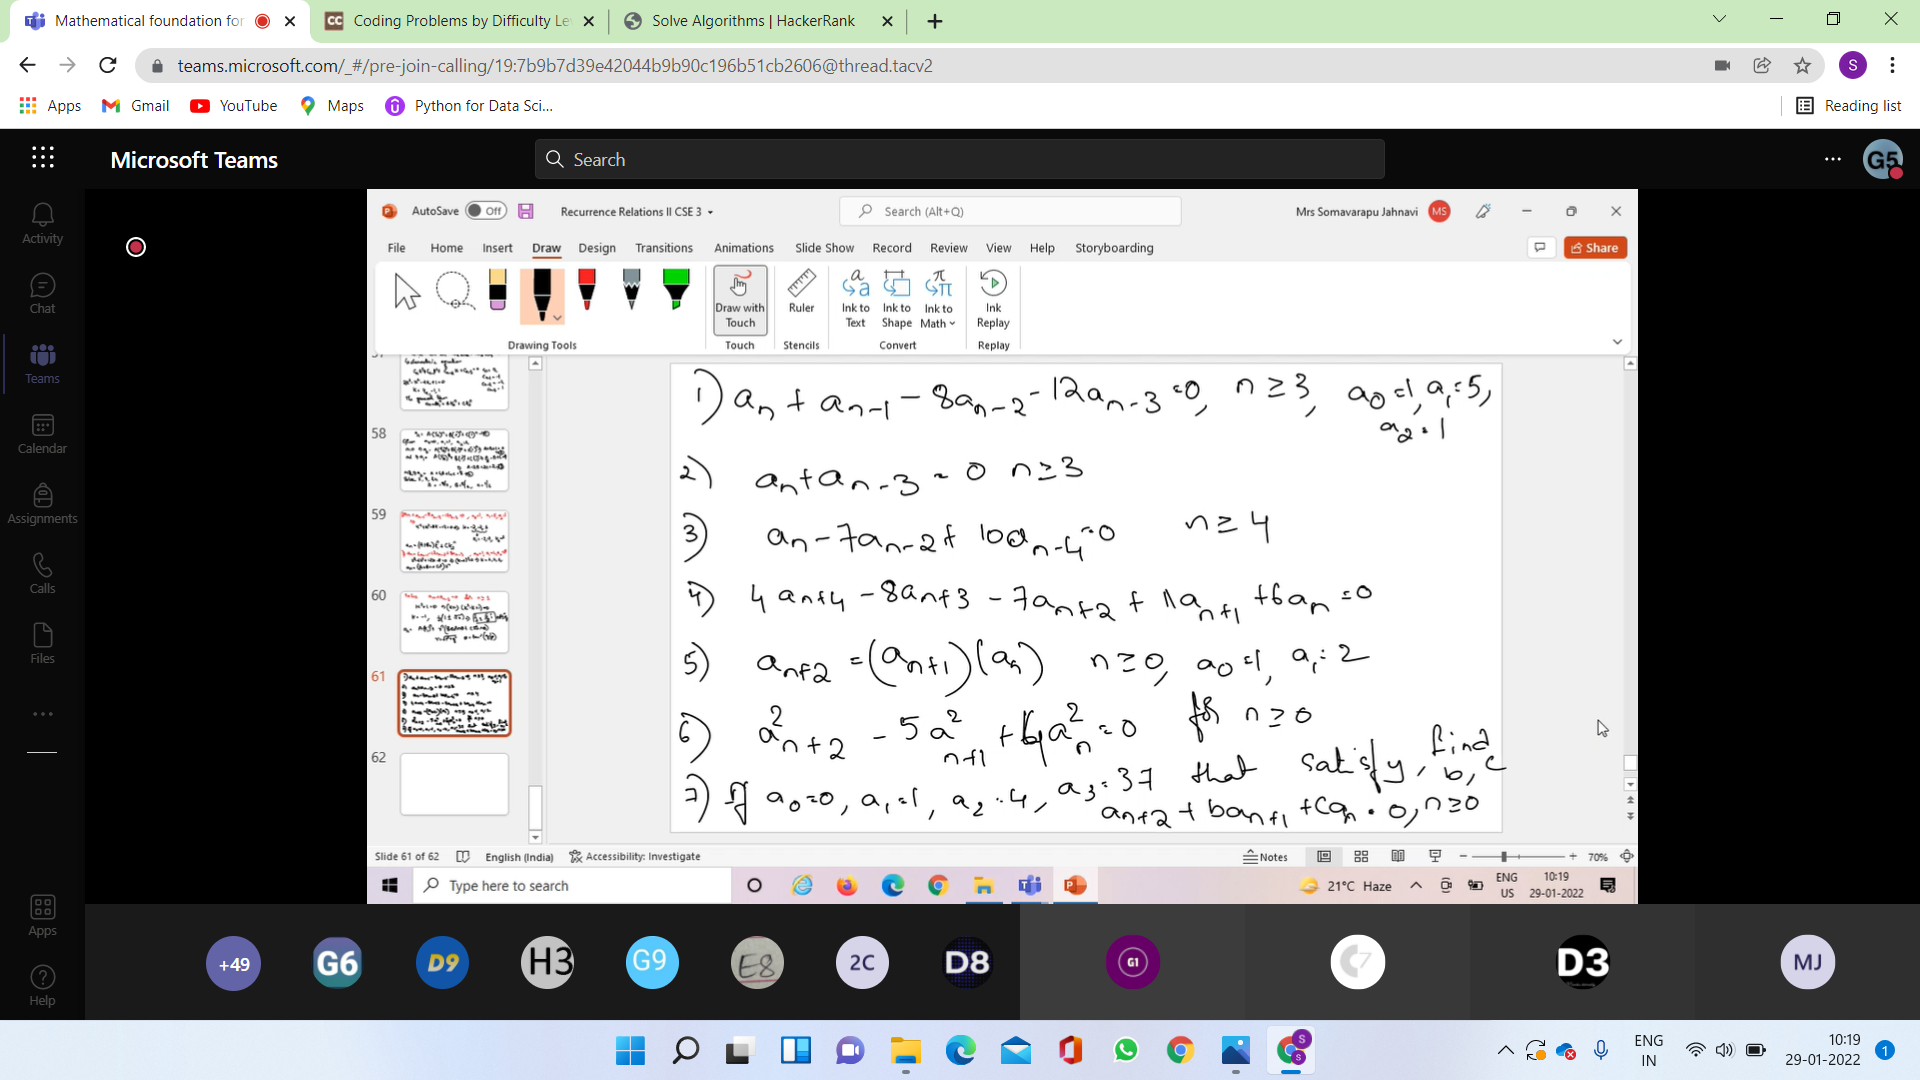 Mathematical foundation for
Coding Problems by Difficulty Le
Solve Algorithms | HackerRank
teams.microsoft.com/_#/pre-join-calling/19:7b9b7d39e42044b9b90c196b51cb2606@thread.tacv2
S
Apps
Gmail
YouTube
Maps
Python for Data Sci...
Reading list
Microsoft Teams
Search
G5
Activity
Chat
Teams
Calendar
Assignments
Calls
Files
Apps
Help
AutoSave Off
Recurrence Relations II CSE 3
Search (Alt+Q)
Mrs Somavarapu Jahnavi MS
File Home Insert Draw Design Transitions Animations Slide Show Record Review View Help Storyboarding
Share
Draw with Touch
Ruler
Ink to Text
Ink to Shape
Ink to Math
Ink Replay
Drawing Tools Touch Stencils Convert Replay
58
59
60
61
62
1) a_n + a_{n-1} - 8a_{n-2} - 12a_{n-3} = 0, n ≥ 3, a_0 = 1, a_1 = 5,
a_2 = 1
2) a_n + a_{n-3} = 0 n ≥ 3
3) a_n - 7a_{n-2} + 10a_{n-4} = 0 n ≥ 4
4) 4a_{n+4} - 8a_{n+3} - 7a_{n+2} + 11a_{n+1} + 6a_n = 0
5) a_{n+2} = (a_{n+1})(a_n) n ≥ 0, a_0 = 1, a_1 = 2
6) a²_{n+2} - 5a²_{n+1} + 4a²_n = 0 for n ≥ 0
7) If a_0 = 0, a_1 = 1, a_2 = 4, a_3 = 37 that satisfy, find b, c
a_{n+2} + ba_{n+1} + ca_n = 0, n ≥ 0
Slide 61 of 62
English (India)
Accessibility: Investigate
Notes
70%
Type here to search
21°C Haze
ENG US
10:19
29-01-2022
+49
G6
D9
H3
G9
E8
2C
D8
G1
C7
D3
MJ
ENG IN
10:19
29-01-2022
1